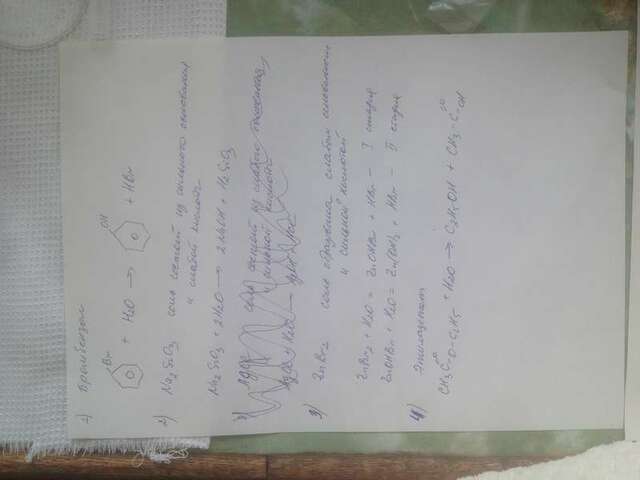 1) Бромбензол
Br + H2O → OH + HBr
2) Na2SiO3 соль состоит из сильного основания
и слабой кислоты
Na2SiO3 + 2H2O → 2NaOH + H2SiO3
3) ZnBr2 соль образована слабым основанием
и сильной кислотой
ZnBr2 + H2O = ZnOHBr + HBr - I стадия
ZnOHBr + H2O = Zn(OH)2 + HBr - II стадия
4) Этилацетат
CH3C O O-C2H5 + H2O → C2H5OH + CH3-C O OH